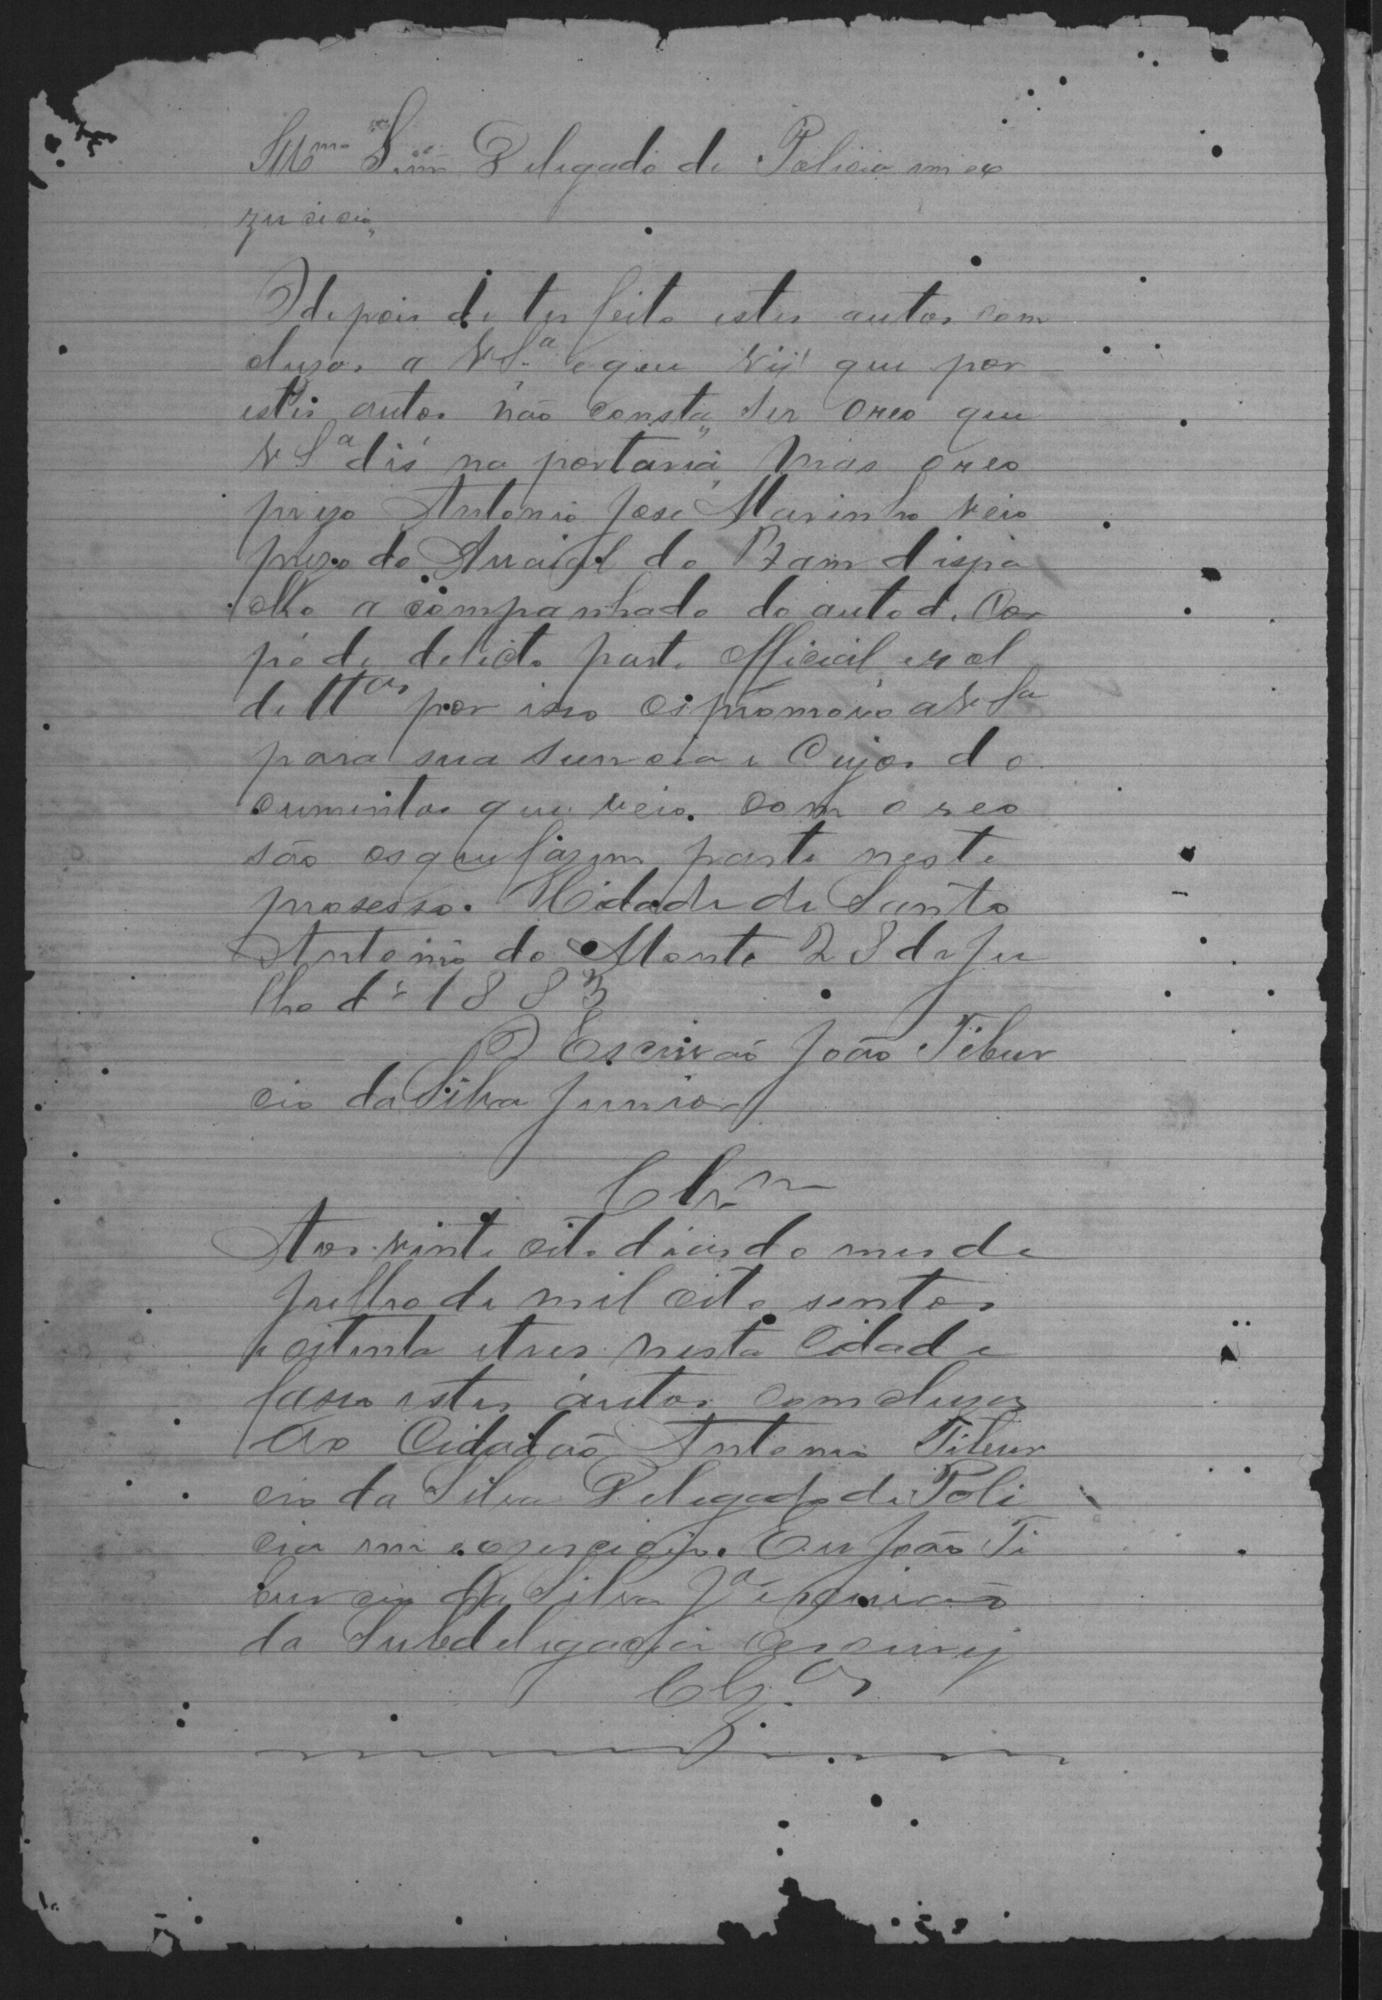 Illmo Snr Delegado de Policia em ex
zericio,
Odepois de ter feito estes autos com
cluzos a VSa é que vij que por
estes autos não consta, ser oreo que
VSa dis na portaria, mas oreo
prezo Antonio José Marinho veio
prezo do Araial do Bam dispa
cho acompanhado do auto d. Cor
pó de delicto parte official erol
de ttas por isso os promovo a VSa
para sua siencia e Cujos do
cumentos que veio com oreo
são osque fazem parte neste
prosesso. Cidade de Santo
Antonio do Monte 28 de Ju
lho de 1883
O Escrivaõ João Tibur
cio da Silva Junior
Clzm
Aos vinte oito dias do mes de
Julho de mil oito sentos
e oitenta etres nesta Cidade
faso estes autos comcluzos
Ao Cidadaõ Antonio Tibur
cio da Silva Delegado de Poli
cia em exsercicio. Eu João Ti
burcio da Silva Jr escrivaõ
da Subdelegacia oescrevij
Clzos